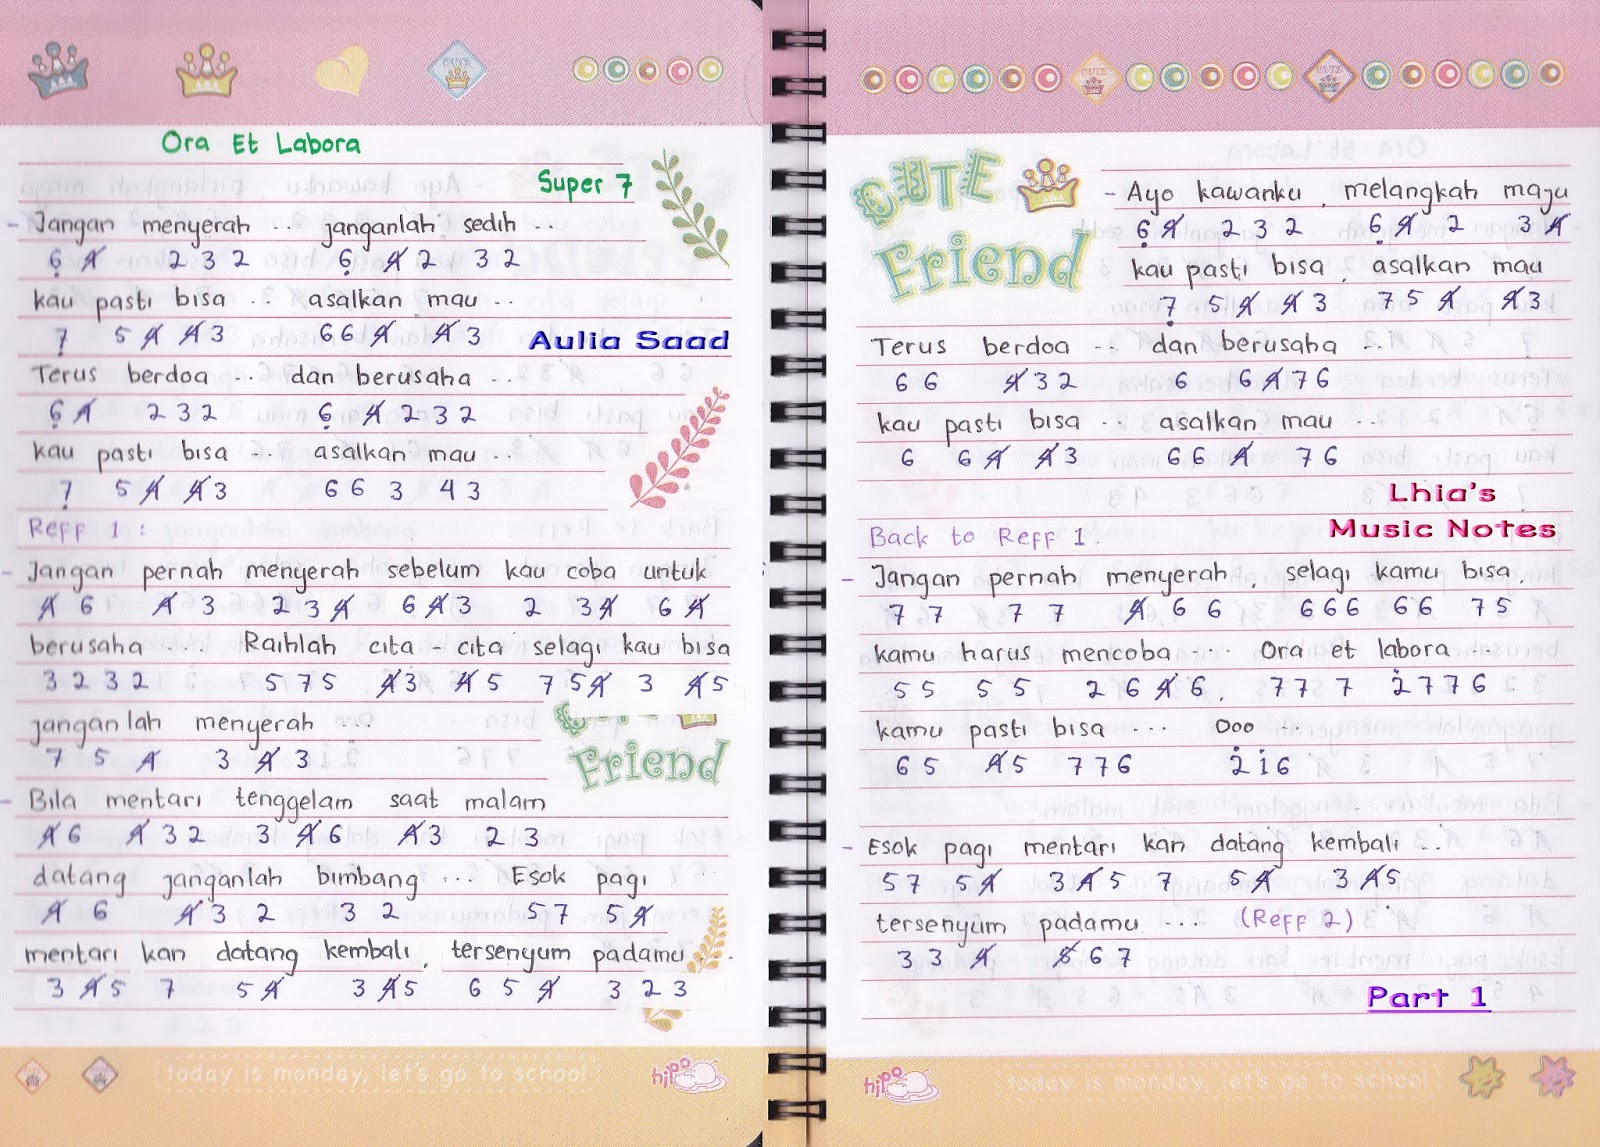 Ora Et Labora
Super 7
- Jangan menyerah ... janganlah sedih ...
6̣ 4̸ 2 3 2 6̣ 4̸ 2 3 2
kau pasti bisa .. asalkan mau ..
7̣ 5 4̸ 4̸ 3 6 6 4̸ 4̸ 3
Aulia Saad
Terus berdoa ... dan berusaha ...
6̣ 4̸ 2 3 2 6̣ 4̸ 2 3 2
kau pasti bisa ... asalkan mau ...
7̣ 5 4̸ 4̸ 3 6 6 3 4 3
Reff 1 :
- Jangan pernah menyerah sebelum kau coba untuk
4̸ 6 4̸ 3 2 3 4̸ 6 4̸ 3 2 3 4̸ 6 4̸
berusaha ... Raihlah cita - cita selagi kau bisa
3 2 3 2 5 7 5 4̸ 3 4̸ 5 7 5 4̸ 3 4̸ 5
janganlah menyerah ...
7 5 4̸ 3 4̸ 3
Friend
- Bila mentari tenggelam saat malam
4̸ 6 4̸ 3 2 3 4̸ 6 4̸ 3 2 3
datang janganlah bimbang ... Esok pagi
4̸ 6 4̸ 3 2 3 2 5 7 5 4̸
mentari kan datang kembali, tersenyum padamu ..
3 4̸ 5 7 5 4̸ 3 4̸ 5 6 5 4̸ 3 2 3
today is monday, let's go to school
hipo
CUTE
Friend
- Ayo kawanku, melangkah maju
6̣ 4̸ 2 3 2 6̣ 4̸ 2 3 4̸
kau pasti bisa, asalkan mau
7̣ 5 4̸ 4̸ 3 7 5 4̸ 4̸ 3
Terus berdoa ... dan berusaha ...
6 6 4̸ 3 2 6 6 4̸ 7 6
kau pasti bisa ... asalkan mau ...
6 6 4̸ 4̸ 3 6 6 4̸ 7 6
Lhia's
Music Notes
Back to Reff 1.
- Jangan pernah menyerah, selagi kamu bisa,
7 7 7 7 4̸ 6 6 6 6 6 6 6 7 5
kamu harus mencoba ... Ora et labora ...
5 5 5 5 2 6 4̸ 6. 7 7 7 2̇ 7 7 6
kamu pasti bisa ... Ooo ...
6 5 4̸ 5 7 7 6 2̇ 1̇ 6
- Esok pagi mentari kan datang kembali ...
5 7 5 4̸ 3 4̸ 5 7 5 4̸ 3 4̸ 5
tersenyum padamu ... (Reff 2)
3 3 4̸ 5̸ 6 7
Part 1
hipo
today is monday, let's go to school